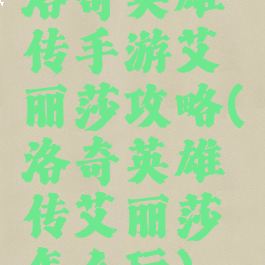 洛奇英雄
传手游艾
丽莎攻略(
洛奇英雄
传艾丽莎
怎么玩)